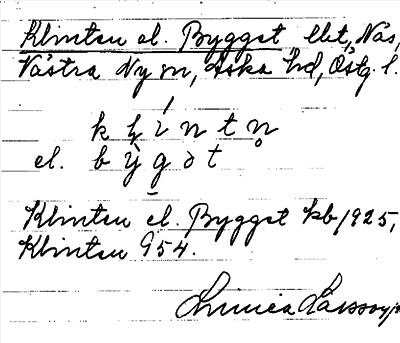 Klinten el. Bygget, lht, Näs,
Västra Ny sn, Aska hd, Östg. l.
k l i n t n
el. b y g ə t
Klinten el. Bygget kb 1925,
Klinten 954.
Linnea Larsson